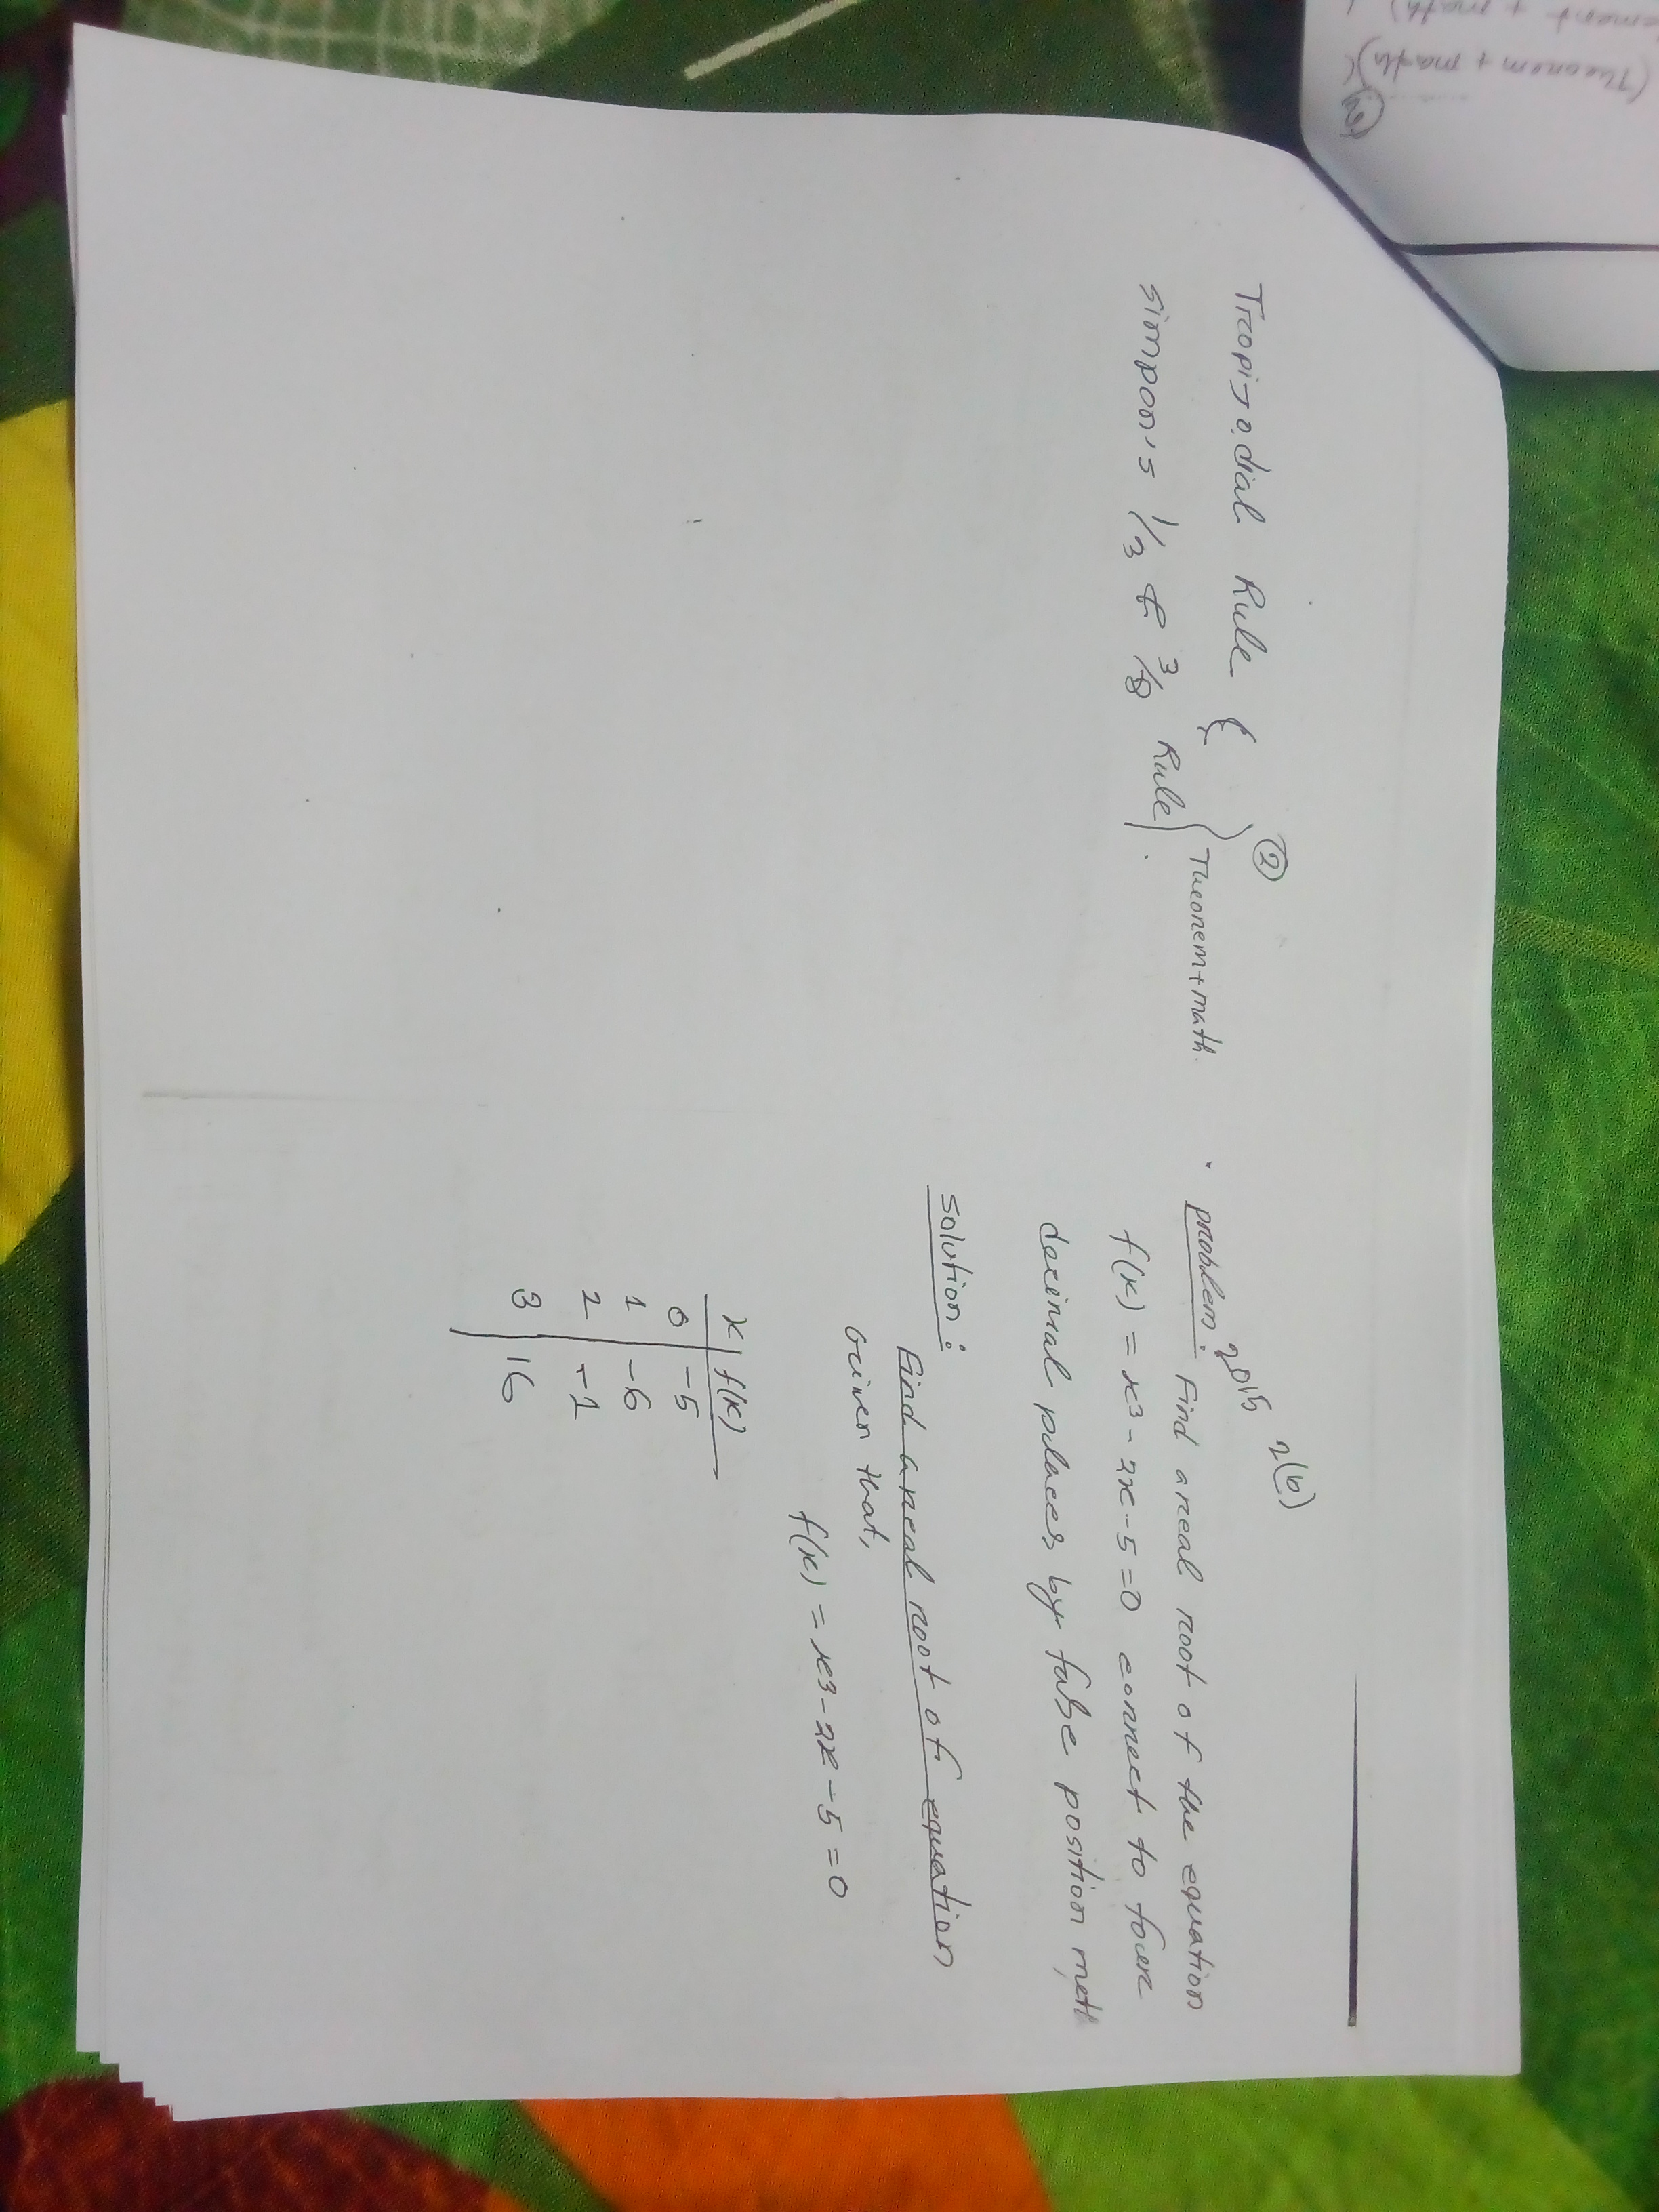 (Theorem + math)(
+ math)
2
Tropizodial Rule {
2
Simpon's 1/3 & 3/8 Rule
Theorem+math.
2015 2(b)
problem:
Find a real root of the equation
f(x) = x3 - 2x - 5 = 0 correct to four
decimal places by false position meth
solution:
Find a real root of equation
Given that,
f(x) = x3 - 2x - 5 = 0
x f(x)
0 -5
1 -6
2 -1
3 16